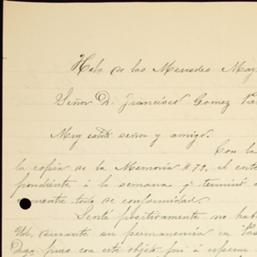 Hda de las Mercedes May
Señor D. Francisco Gomez
Muy estdo señor y amigo.
Con la
la copia de la Memoria #72, el
pondiente á la semana, qe terminó
todo de conformidad.
Sentí positivamente no
Ud. durante su permanencia en
Diego, pues con este objeto fuí á